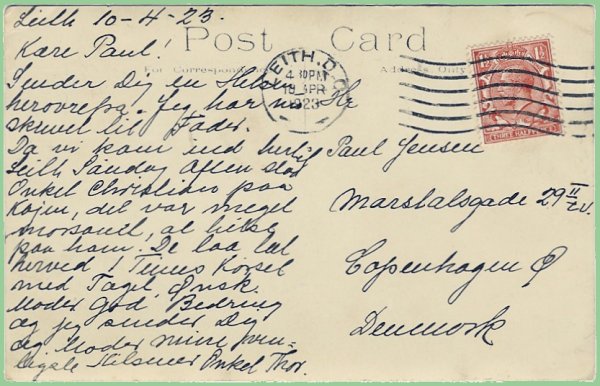 Leith 10-4-23.
Kære Paul!
Post Card
For Correspondence
Address Only
LEITH. D.O.
4 30PM
18 APR
1923
Sender Dig en Hilsen
herovrefra. Jeg har nu
skrevet til Fader.
Da vi kom ind hertil
Leith Søndag Aften stod
Onkel Christian paa
Kajen, det var meget
morsomt, at hilse
paa ham. De laa læt
herved 1 Times Kørsel
med Toget. Ønsk
Moder God Bedring
og jeg sender Dig
og Moder mine ven-
ligste Hilsner Onkel Thor.
Hr
Paul Jensen
Marstalsgade 29 II
Copenhagen Ø
Denmark
THREE HALFPENCE